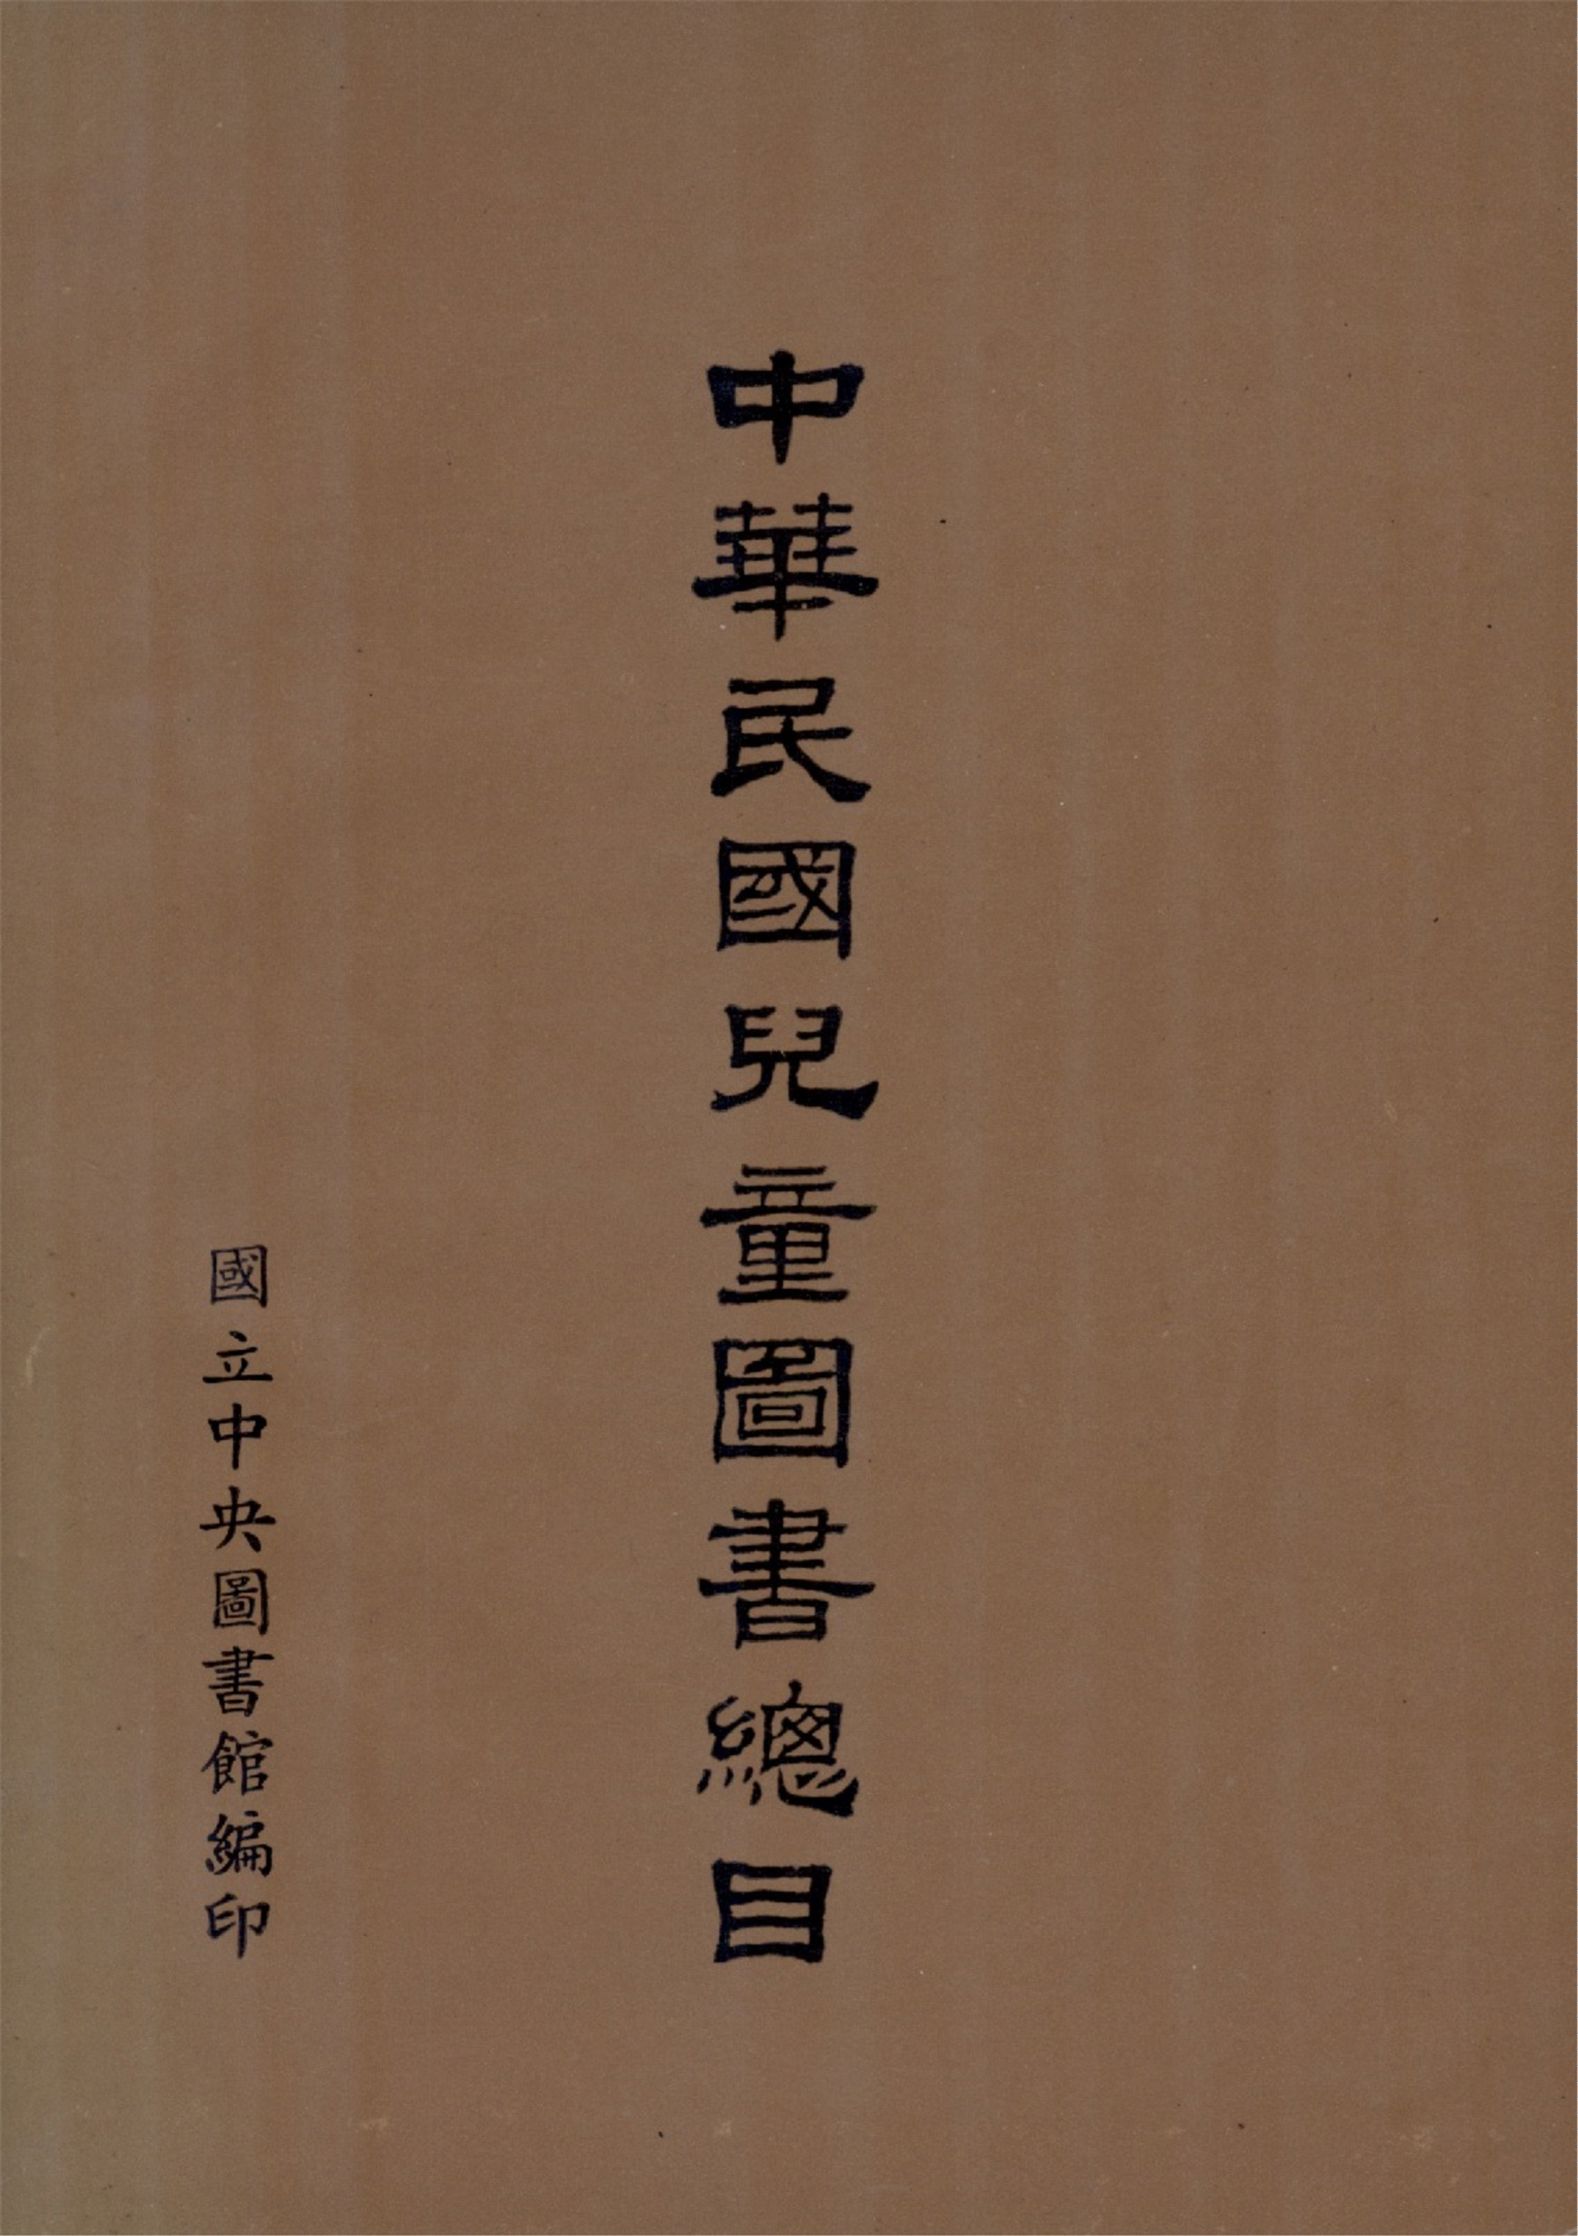 中華民國兒童圖書總目
國立中央圖書館編印